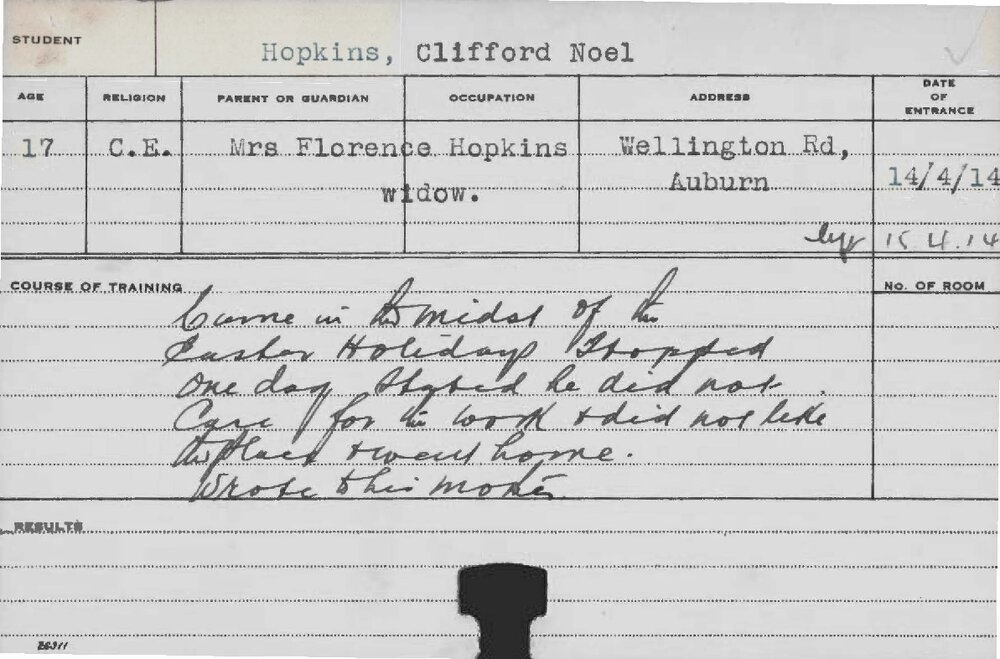 STUDENT
Hopkins, Clifford Noel
AGE RELIGION PARENT OR GUARDIAN OCCUPATION ADDRESS DATE OF ENTRANCE
17 C.E. Mrs Florence Hopkins Wellington Rd,
widow. Auburn 14/4/14
15 4.14
COURSE OF TRAINING No. OF ROOM
Came in the midst of the
Easter Holidays Stopped
one day stated he did not
Care for the work & did not like
the place & went home.
Wrote to his mother.
RESULTS